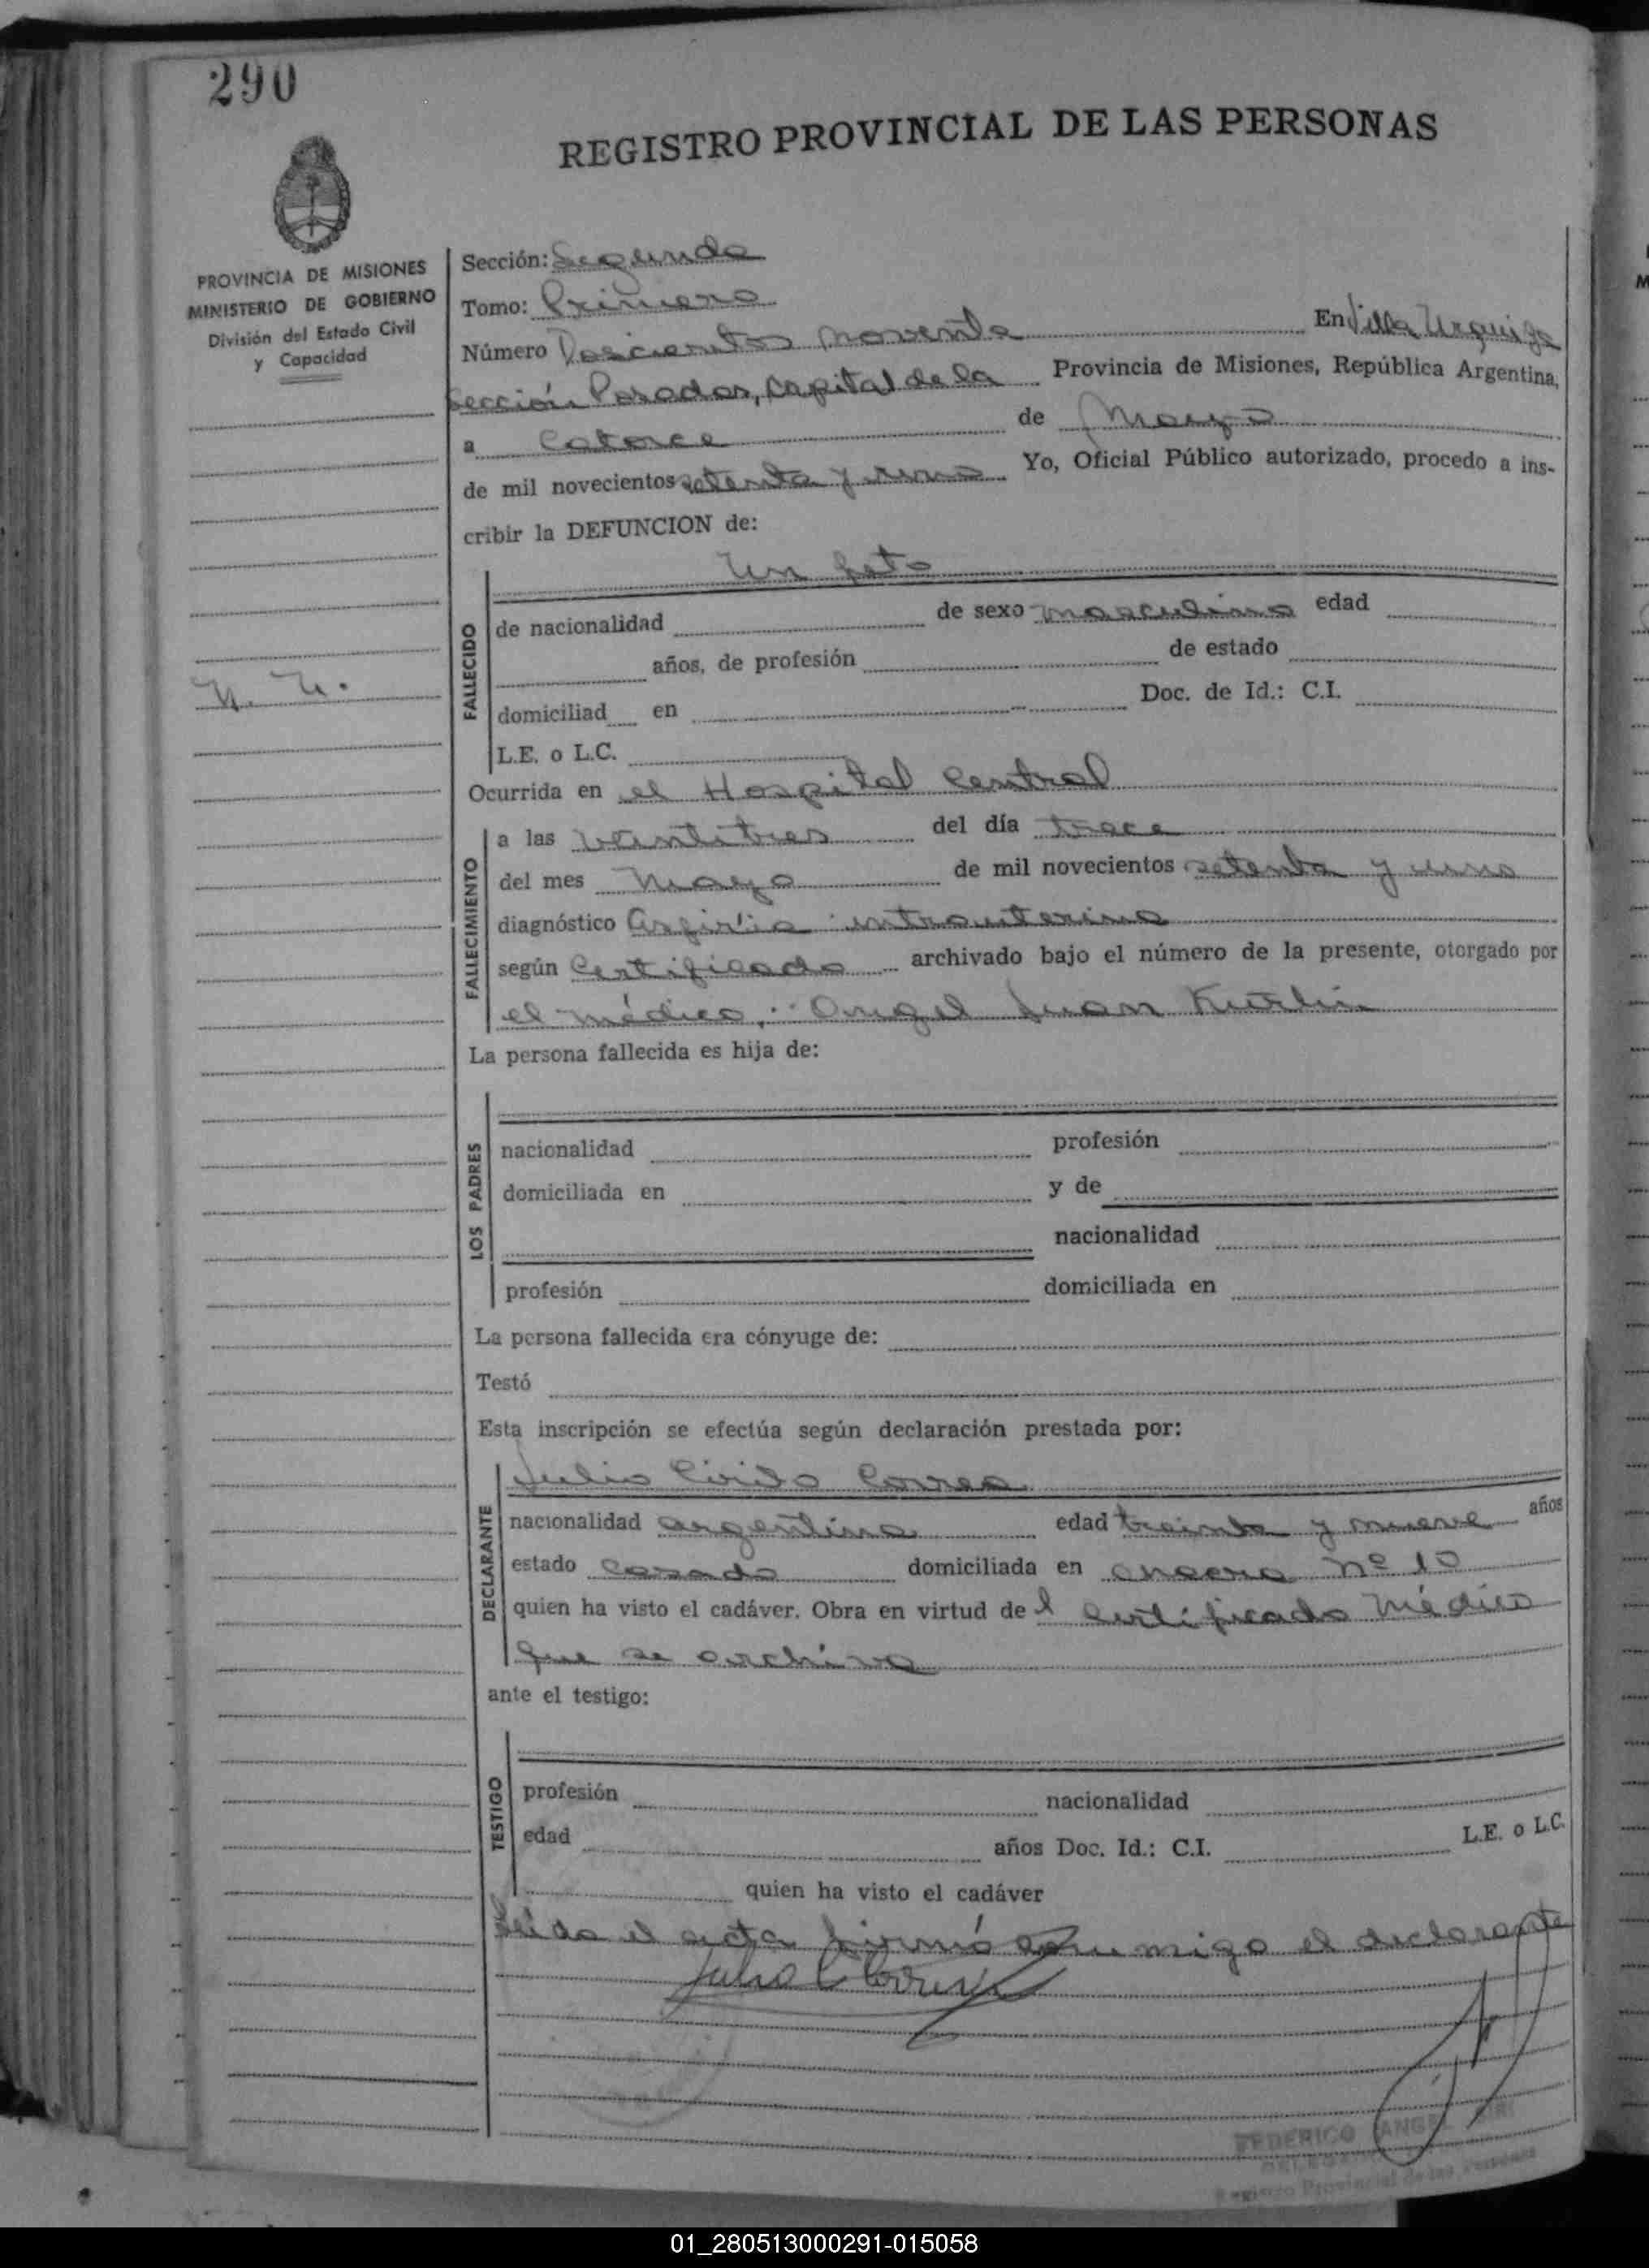 290
REGISTRO PROVINCIAL DE LAS PERSONAS
PROVINCIA DE MISIONES
MINISTERIO DE GOBIERNO
División del Estado Civil
y Capacidad
Sección: Segunda
Tomo: Primero
Número Doscientos noventa En Villa Urquiza
Sección Posadas, Capital de la Provincia de Misiones, República Argentina,
a Catorce de Mayo
de mil novecientos setenta y uno Yo, Oficial Público autorizado, procedo a ins-
cribir la DEFUNCION de:
Un feto
FALLECIDO
de nacionalidad de sexo masculino edad
años, de profesión de estado
N. N.
domiciliad en Doc. de Id.: C.I.
L.E. o L.C.
Ocurrida en el Hospital Central
FALLECIMIENTO
a las veintitres del día trece
del mes Mayo de mil novecientos setenta y uno
diagnóstico Asfixia intrauterina
según Certificado archivado bajo el número de la presente, otorgado por
el médico, Angel Juan
La persona fallecida es hija de:
LOS PADRES
nacionalidad profesión
domiciliada en y de
nacionalidad
profesión domiciliada en
La persona fallecida era cónyuge de:
Testó
Esta inscripción se efectúa según declaración prestada por:
DECLARANTE
Julio Correa
nacionalidad argentina edad treinta y nueve años
estado casado domiciliada en chacra Nº 10
quien ha visto el cadáver. Obra en virtud del Certificado Médico
que se archiva
ante el testigo:
TESTIGO
profesión nacionalidad
edad años Doc. Id.: C.I. L.E. o L.C.
quien ha visto el cadáver
Leída el acta firmó conmigo el declarante
Julio C Correa
FEDERICO ANGEL
Registro Provincial de las Personas
01_280513000291-015058